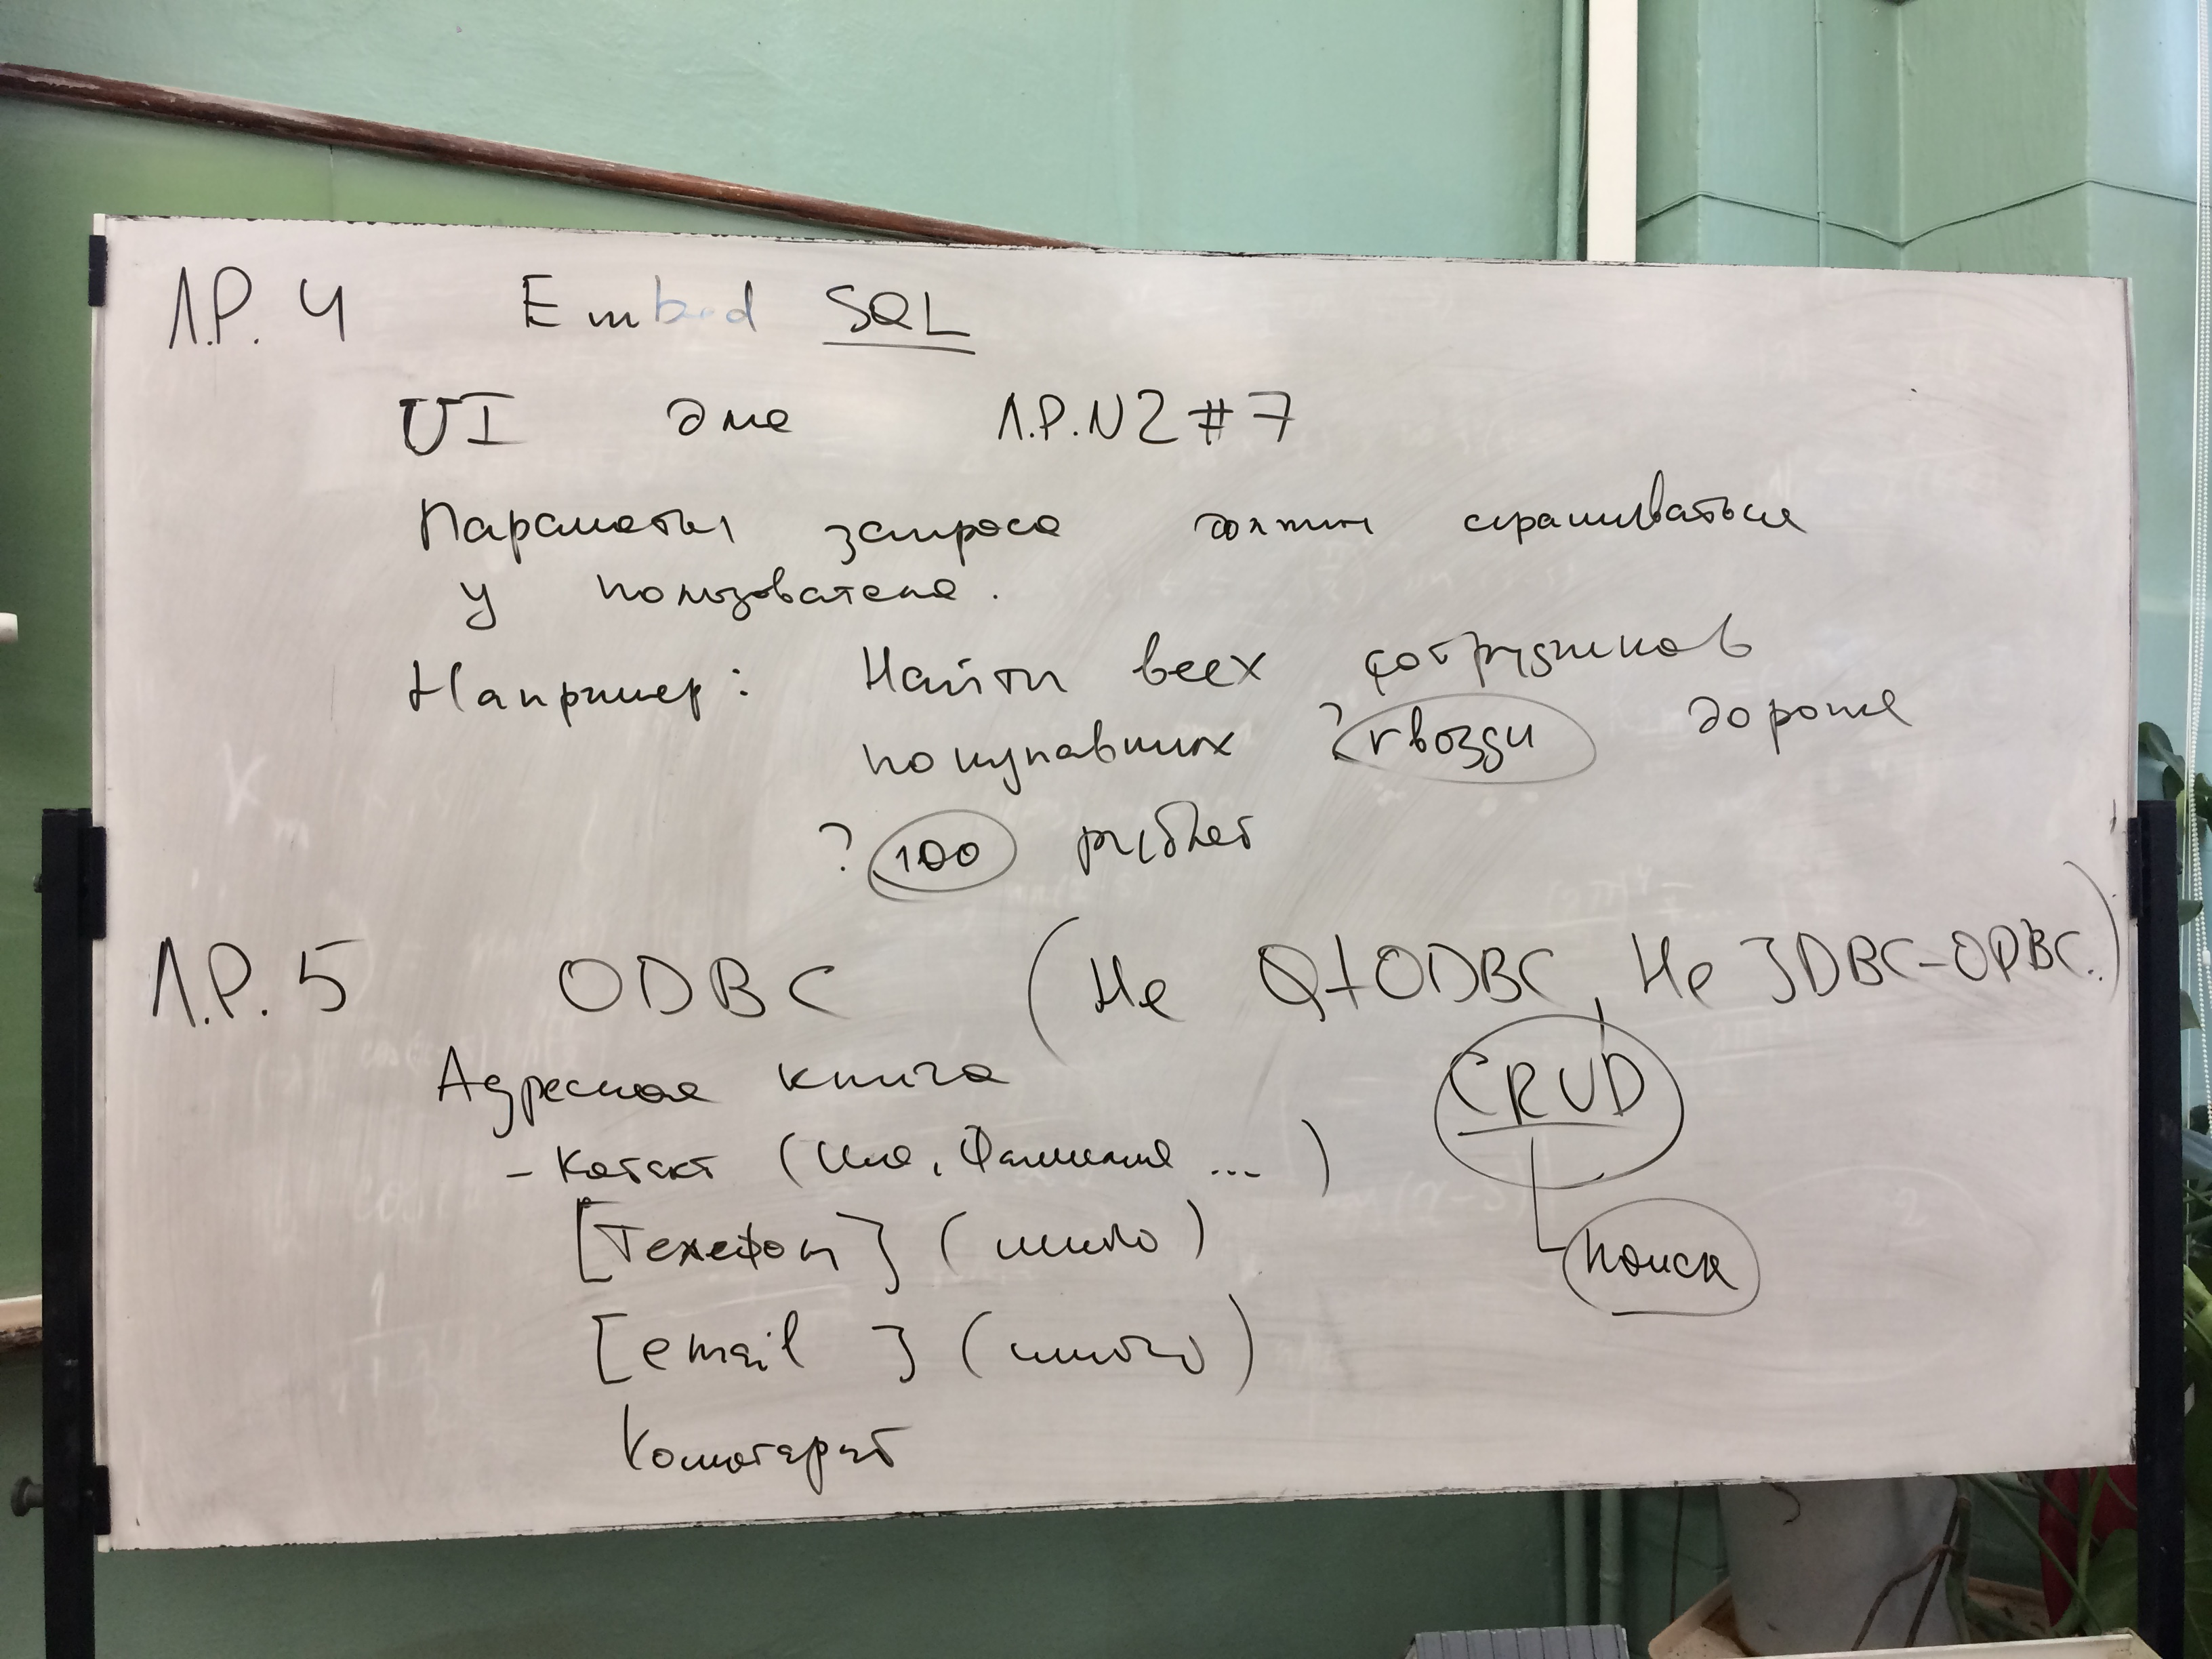 Л.Р. 4 Embed SQL
UI для Л.Р. N2 #7
Параметры запроса должны спрашиваться
у пользователя.
Например: Найти всех сотрудников
покупавших ? гвозди дороже
? 100 рублей
Л.Р. 5 ODBC (Не QtODBC, Не JDBC-ODBC..)
Адресная книга CRUD
- Контакт (Имя, Фамилия ... )
[Телефон] (много)
поиск
[email ] (много)